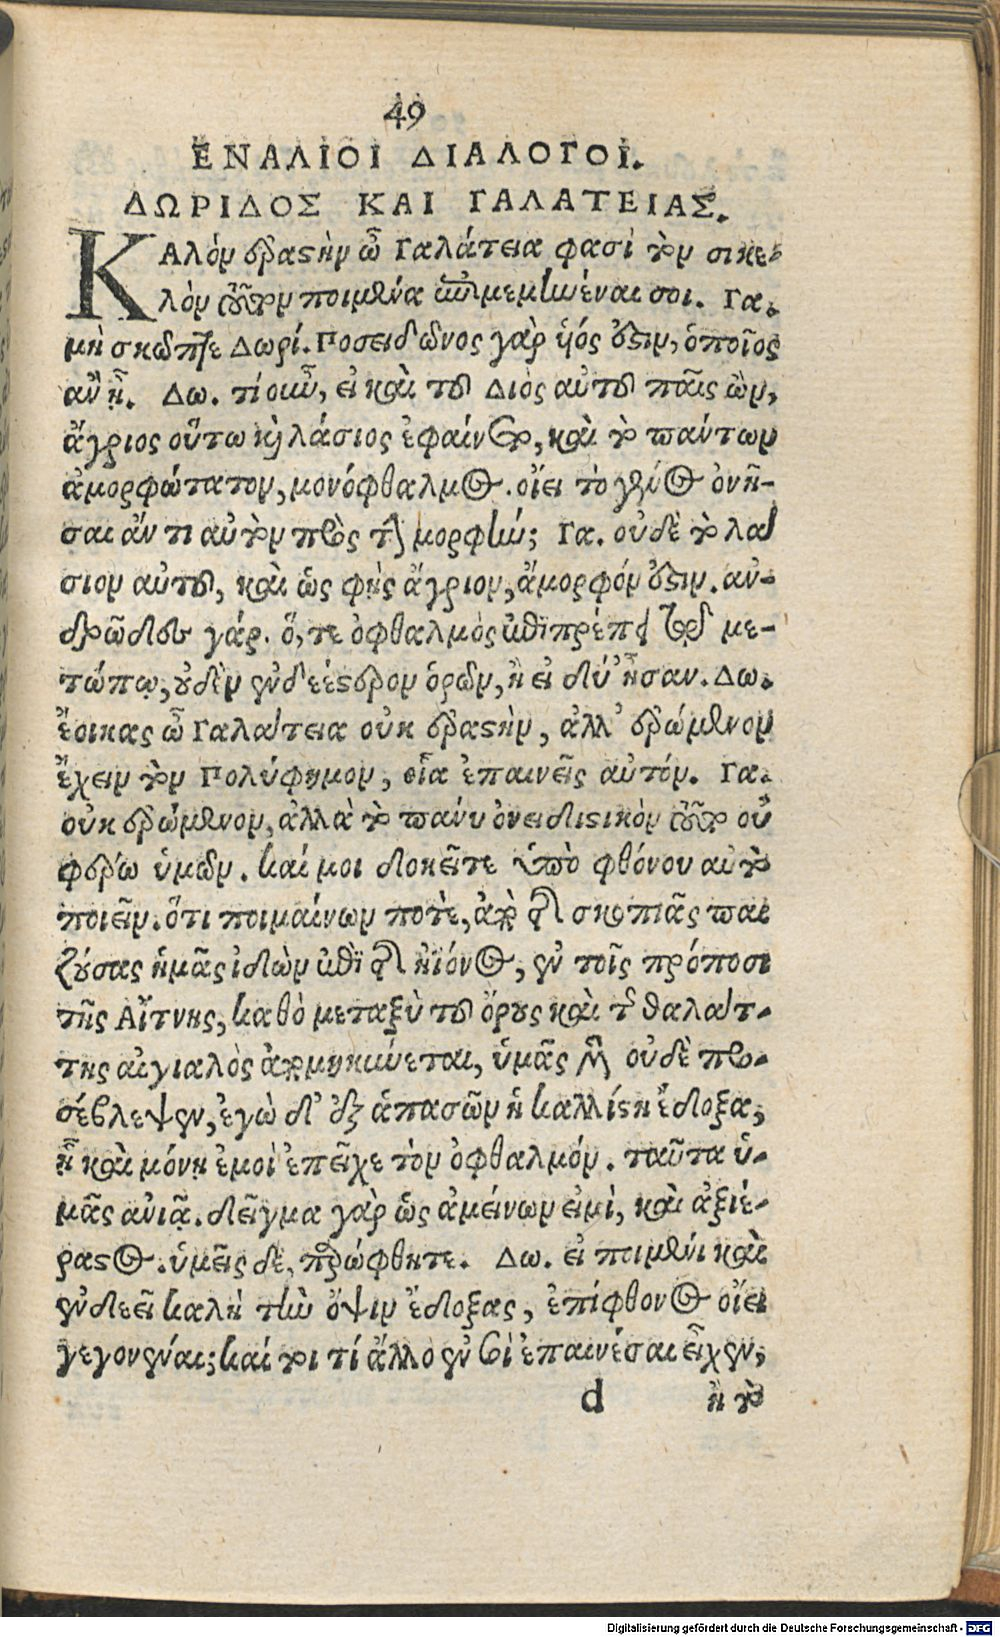 49
ΕΝΑΛΙΟΙ ΔΙΑΛΟΓΟΙ.
ΔΩΡΙΔΟΣ ΚΑΙ ΓΑΛΑΤΕΙΑΣ.
ΚΑλὸν ἐραστὴν ὦ Γαλάτεια φασὶ τὸν σικε-
λὸν τοῦτον ποιμένα ἐπιμεμηνέναι σοι. Γα.
μὴ σκῶπτε Δωρί. Ποσειδῶνος γὰρ ὑός ἐστιν, ὁποῖος
ἂν ᾖ. Δω. τί οὖν, εἰ καὶ τοῦ Διὸς αὐτοῦ παῖς ὢν,
ἄγριος οὕτω καὶ λάσιος ἐφαίνετο, καὶ τὸ πάντων
ἀμορφώτατον, μονόφθαλμος. οἴει τὸ γένος ὀνῆ-
σαι ἄν τι αὐτὸν πρὸς τὴν μορφήν; Γα. οὐδὲ τὸ λά
σιον αὐτοῦ, καὶ ὡς φῂς ἄγριον, ἄμορφόν ἐστιν. ἀν-
δρῶδες γάρ. ὅ, τε ὀφθαλμὸς ἐπιπρέπει τῷ με-
τώπῳ, οὐδὲν ἐνδεέστρον ὁρῶν, ἢ εἰ δύ' ἦσαν. Δω.
ἔοικας ὦ Γαλάτεια οὐκ ἐραστὴν, ἀλλ' ἐρώμενον
ἔχειν τὸν Πολύφημον, οἷα ἐπαινεῖς αὐτόν. Γα.
οὐκ ἐρώμενον, ἀλλὰ τὸ πάνυ ὀνειδιστικὸν τοῦτο οὐ
φέρω ὑμῶν. καί μοι δοκεῖτε ὑπὸ φθόνου αὐτὸ
ποιεῖν. ὅτι ποιμαίνων ποτὲ, ἀπὸ τῆς σκοπιᾶς παι
ζούσας ἡμᾶς ἰδὼν ἐπὶ τῆς ἠϊόνος, ἐν τοῖς πρόποσι
τῆς Αἴτνης, καθὸ μεταξὺ τοῦ ὄρους καὶ τῆς θαλάτ-
της αἰγιαλὸς ἀπομηκύνεται, ὑμᾶς μὲν οὐδὲ προ-
σέβλεψεν, ἐγὼ δ' ἐξ ἁπασῶν ἡ καλλίστη ἔδοξα,
ᾗ καὶ μόνῃ ἐμοὶ ἐπεῖχε τὸν ὀφθαλμόν. ταῦτα ὑ-
μᾶς ἀνιᾷ. δεῖγμα γὰρ ὡς ἀμείνων εἰμὶ, καὶ ἀξιέ-
ραστος. ὑμεῖς δὲ, παρώφθητε. Δω. εἰ ποιμένι καὶ
ἐνδεεῖ καλὴ τὴν ὄψιν ἔδοξας, ἐπίφθονος οἴει
γεγονέναι; καί τοι τί ἄλλο ἐν σοὶ ἐπαινέσαι εἶχεν,
d ἢ τὸ
Digitalisierung gefördert durch die Deutsche Forschungsgemeinschaft - DFG